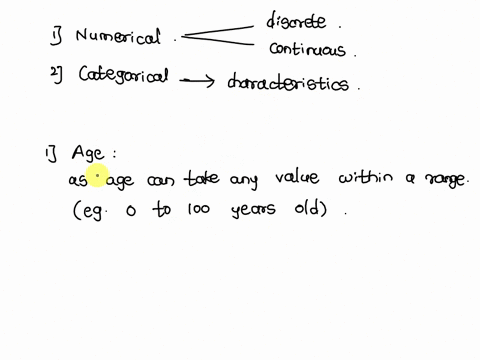 1] Numerical. discrete.
continuous.
2] Categorical → characteristics.
1] Age:
as age can take any value within a range.
(eg. 0 to 100 years old).